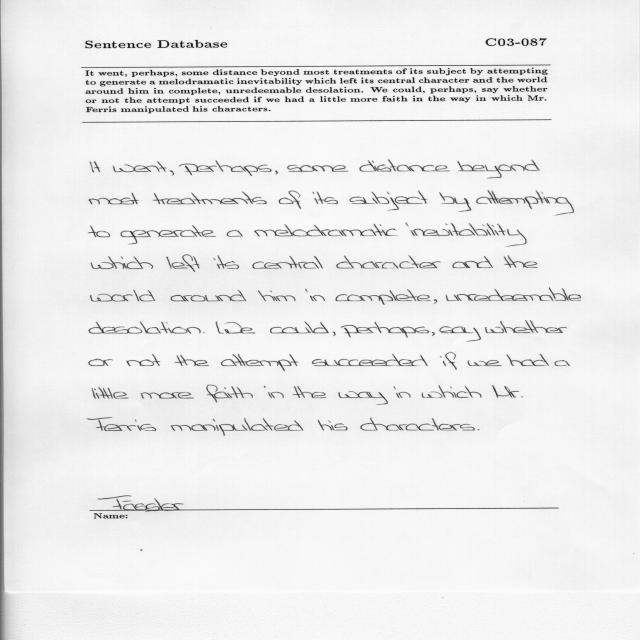 Sentence Database C03-087
It went, perhaps, some distance beyond most treatments of its subject by attempting
to generate a melodramatic inevitability which left its central character and the world
around him in complete, unredeemable desolation. We could, perhaps, say whether
or not the attempt succeeded if we had a little more faith in the way in which Mr.
Ferris manipulated his characters.
It went, perhaps, some distance beyond
most treatments of its subject by attempting
to generate a melodramatic inevitability
which left its central character and the
world around him in complete, unredeemable
desolation. We could, perhaps, say whether
or not the attempt succeeded if we had a
little more faith in the way in which Mr.
Ferris manipulated his characters.
Name: